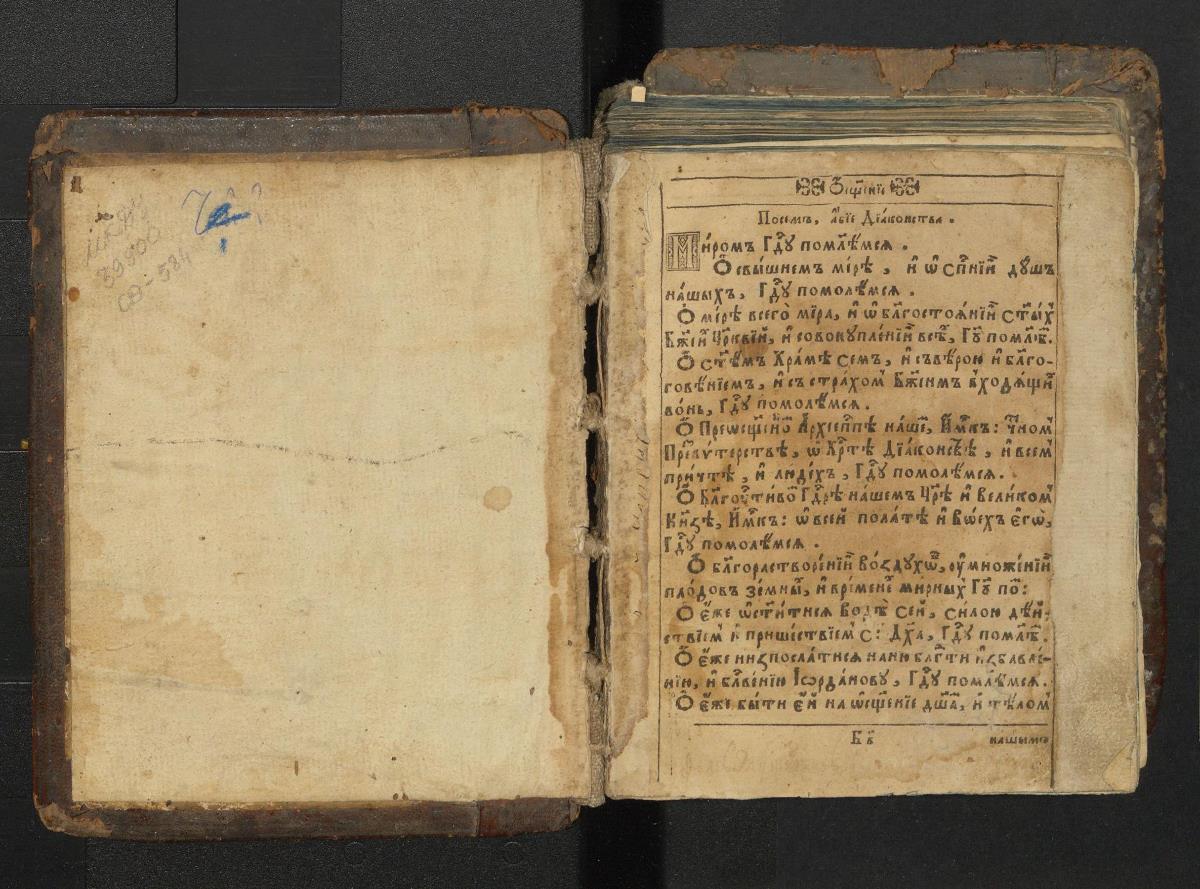 39900
СВ-584
Ѡсщ҃еніе
Посемъ, а҆бїе Дїаконства.
Миромъ Гдⷭ҇у помолѣмсѧ.
Ѽ свышнемъ мирѣ, и҆ ѡ҆ сп҃сенїи дꙋшъ
нашыхъ, Гдⷭ҇у помолѣмсѧ.
Ѽ мирѣ всего̀ мїра, и҆ ѡ҆ блг҃остоѧнїи ст҃ыхъ
Бж҃їихъ Цр҃квїй, и҆ совокупленїи всѣхъ, Гдⷭ҇у помолѣмсѧ.
Ѽ ст҃ѣмъ Храмѣ семъ, и҆ съ вѣрою и҆ блг҃о-
говѣнїемъ, и҆ съ страхомъ Бж҃їимъ входѧщихъ
во́нь, Гдⷭ҇у помолѣмсѧ.
Ѽ Преѡсщ҃енномъ Архїепⷭ҇пѣ нашемъ, И҆мⷬ҇къ: чⷭ҇номъ
Презвутерствѣ, ѡ҆ Хрⷭ҇тѣ Дїаконствѣ, и҆ всемъ
при́чтѣ, и҆ лю́дехъ, Гдⷭ҇у помолѣмсѧ.
Ѽ Блг҃очⷭ҇тивомъ Гдⷭ҇рѣ нашемъ Цр҃ѣ и҆ великомъ
Кнѧзѣ, И҆мⷬ҇къ: ѡ҆ всей полатѣ и҆ во́ехъ є҆гѡ̀,
Гдⷭ҇у помолѣмсѧ.
Ѽ благорастворенїи воздухѡвъ, ѹ҆множенїи
плодовъ земныхъ, и҆ временехъ мирныхъ Гдⷭ҇у по:
Ѽ є҆́же ѡ҆ст҃итисѧ водѣ сей, силою дѣй-
ствїемъ и҆ пришествїемъ с: Дх҃а, Гдⷭ҇у помолѣмсѧ.
Ѽ є҆́же низпослатисѧ на ню блгⷣти и҆збавле-
нїю, и҆ блⷭ҇венїю Іѡрда́нову, Гдⷭ҇у помолѣмсѧ.
Ѽ є҆́же быти є҆й на ѡ҆сщ҃енїе дш҃амъ, и҆ тѣломъ
Б в҃
нашымъ